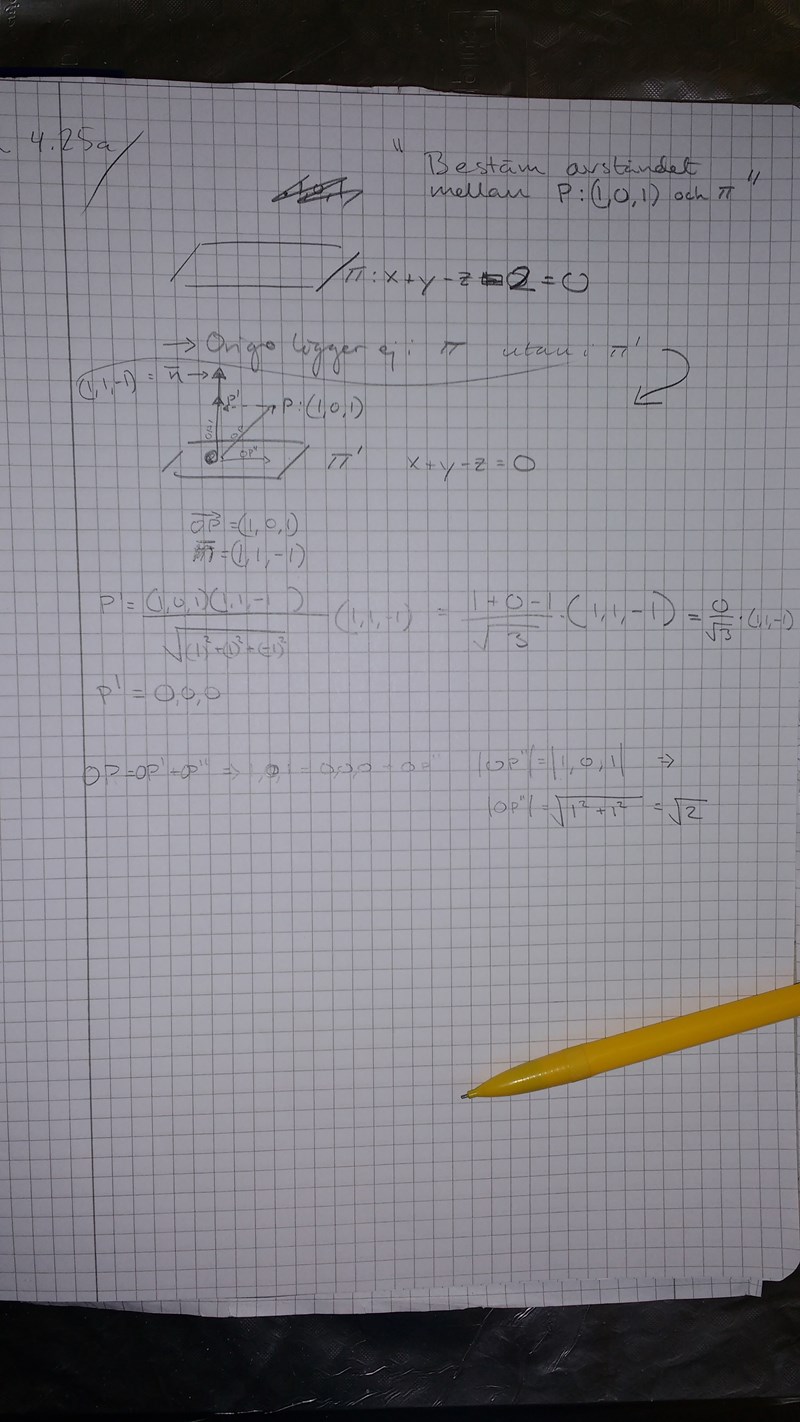 4.25a
" Bestäm avståndet
mellan P:(1,0,1) och π "
π: x+y-z-2=0
→ Origo ligger ej i π utan i π'
(1,1,-1) = n →
P' P:(1,0,1)
OP''
π' x+y-z=0
OP=(1,0,1)
n=(1,1,-1)
P'= (1,0,1)(1,1,-1) / √((1)²+(1)²+(-1)²) (1,1,-1) = 1+0-1 / √3 · (1,1,-1) = 0/√3 · (1,1,-1)
P' = 0,0,0
OP=OP'+OP'' ⇒ 1,0,1 = 0,0,0 + OP'' |OP''|=|1,0,1| ⇒
|OP''|=√(1²+1²) = √2